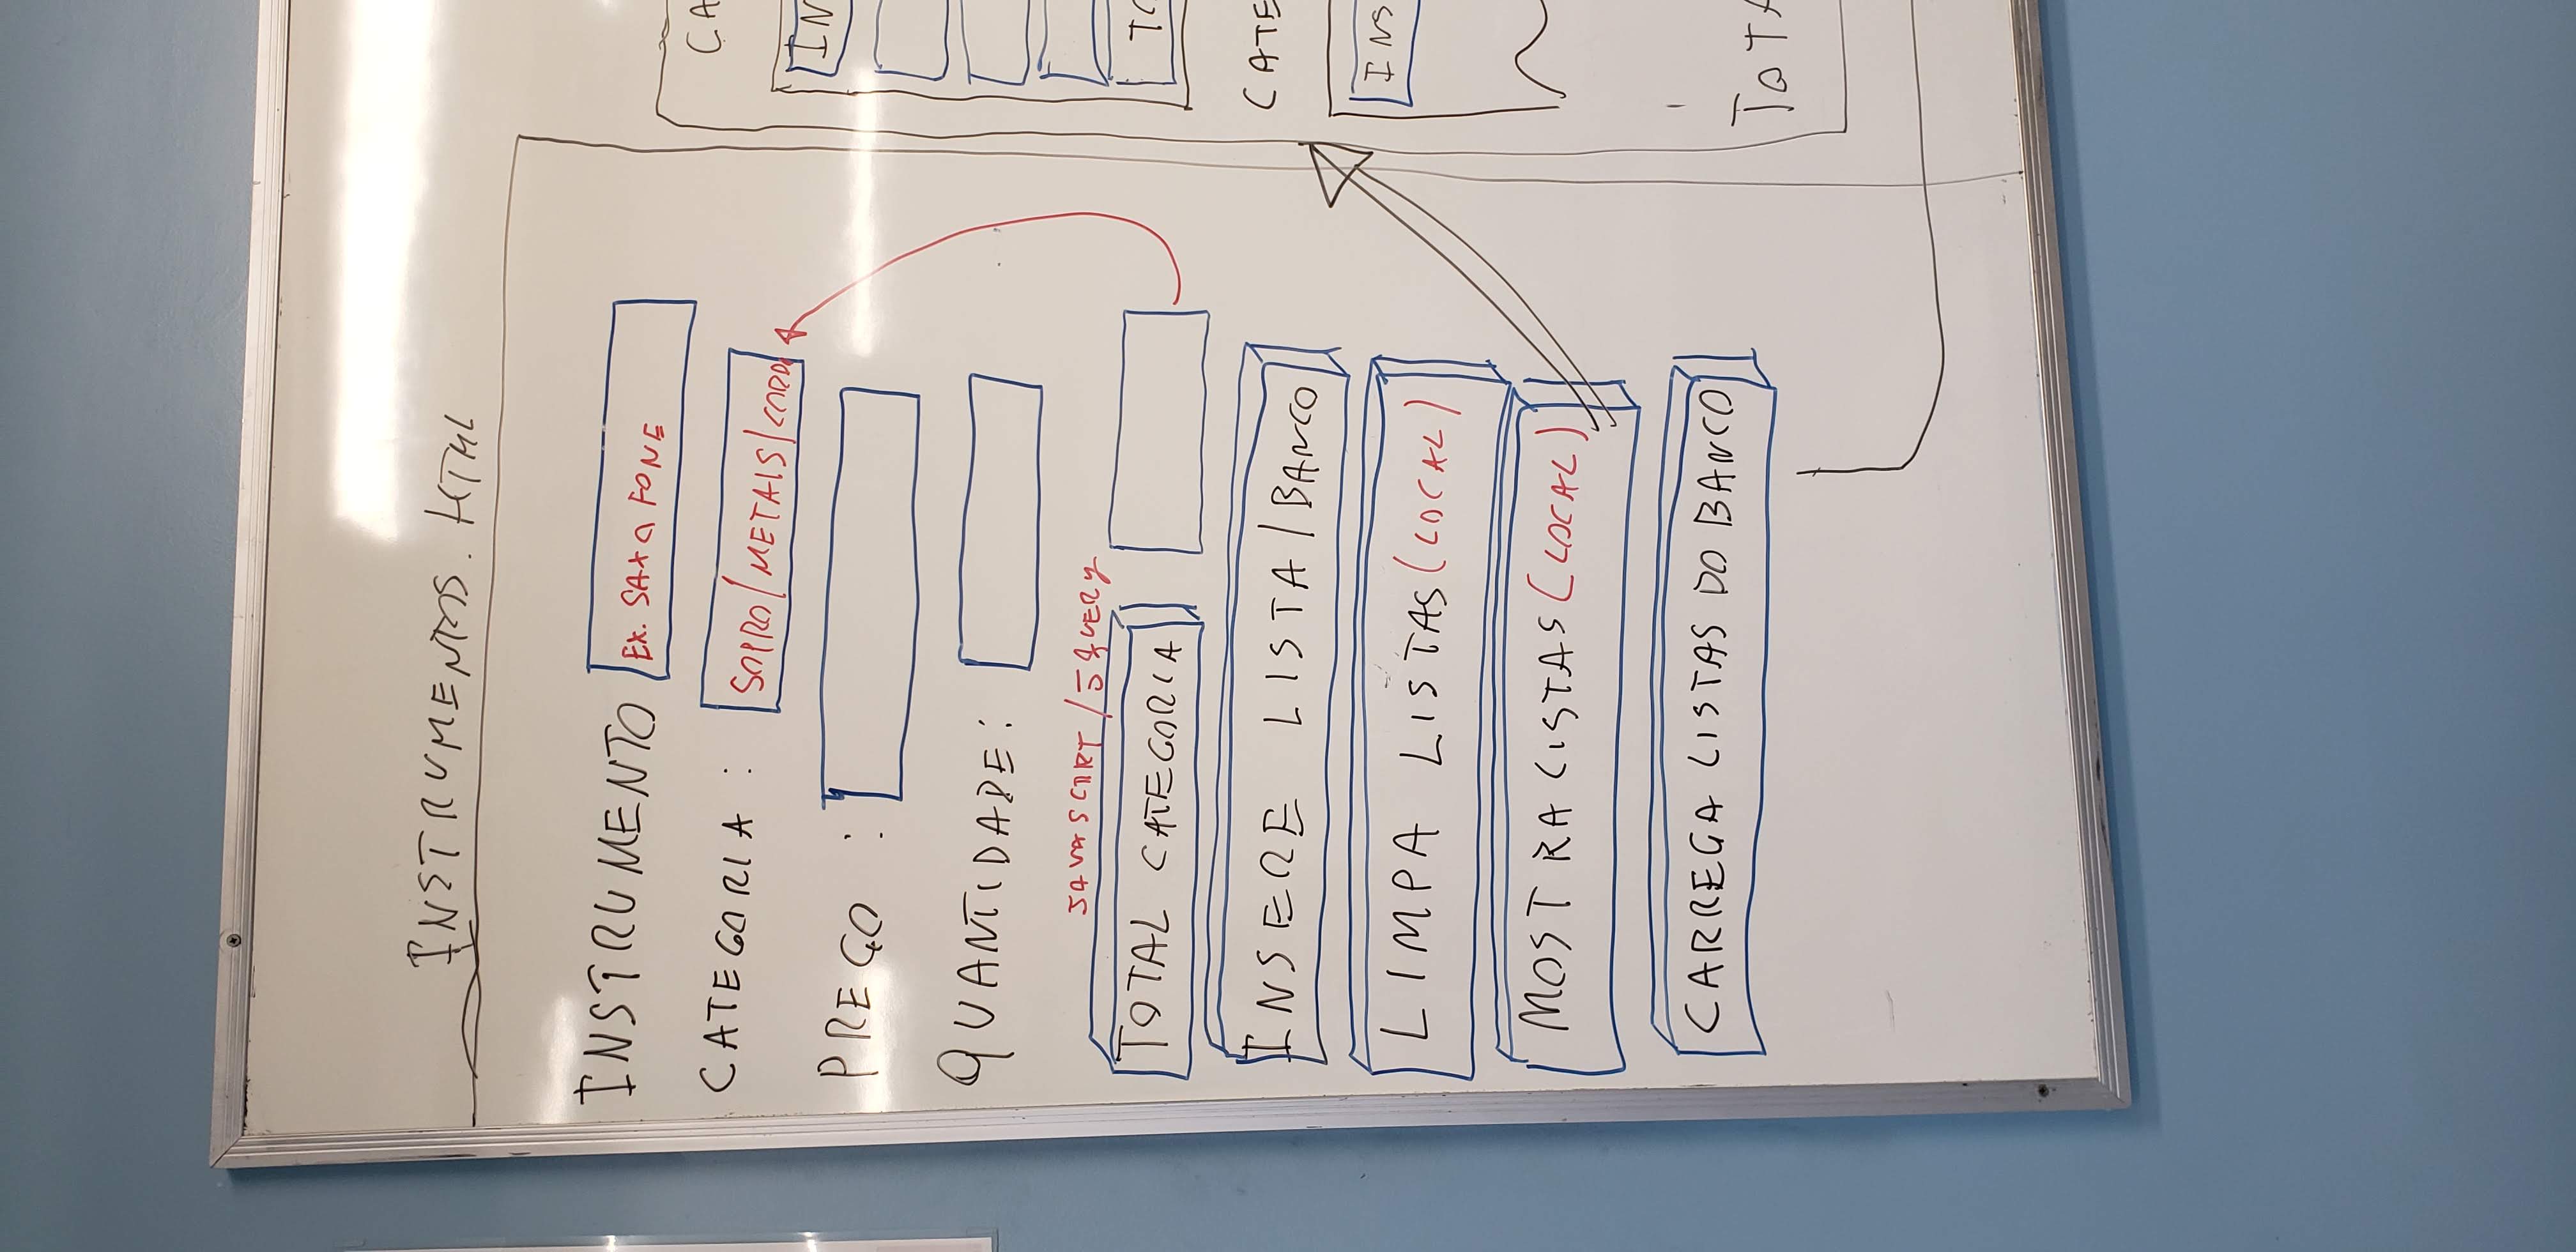 INSTRUMENTOS.HTML
INSTRUMENTO EX. SAXOFONE
CATEGORIA : SOPRO/METAIS/CORDA
PREÇO :
QUANTIDADE:
JAVASCRIPT/JQUERY
TOTAL CATEGORIA
INSERE LISTA/BANCO
LIMPA LISTAS (LOCAL)
MOSTRA LISTAS (LOCAL)
CARREGA LISTAS DO BANCO
CA
IN
TO
CATE
INS
TOTA